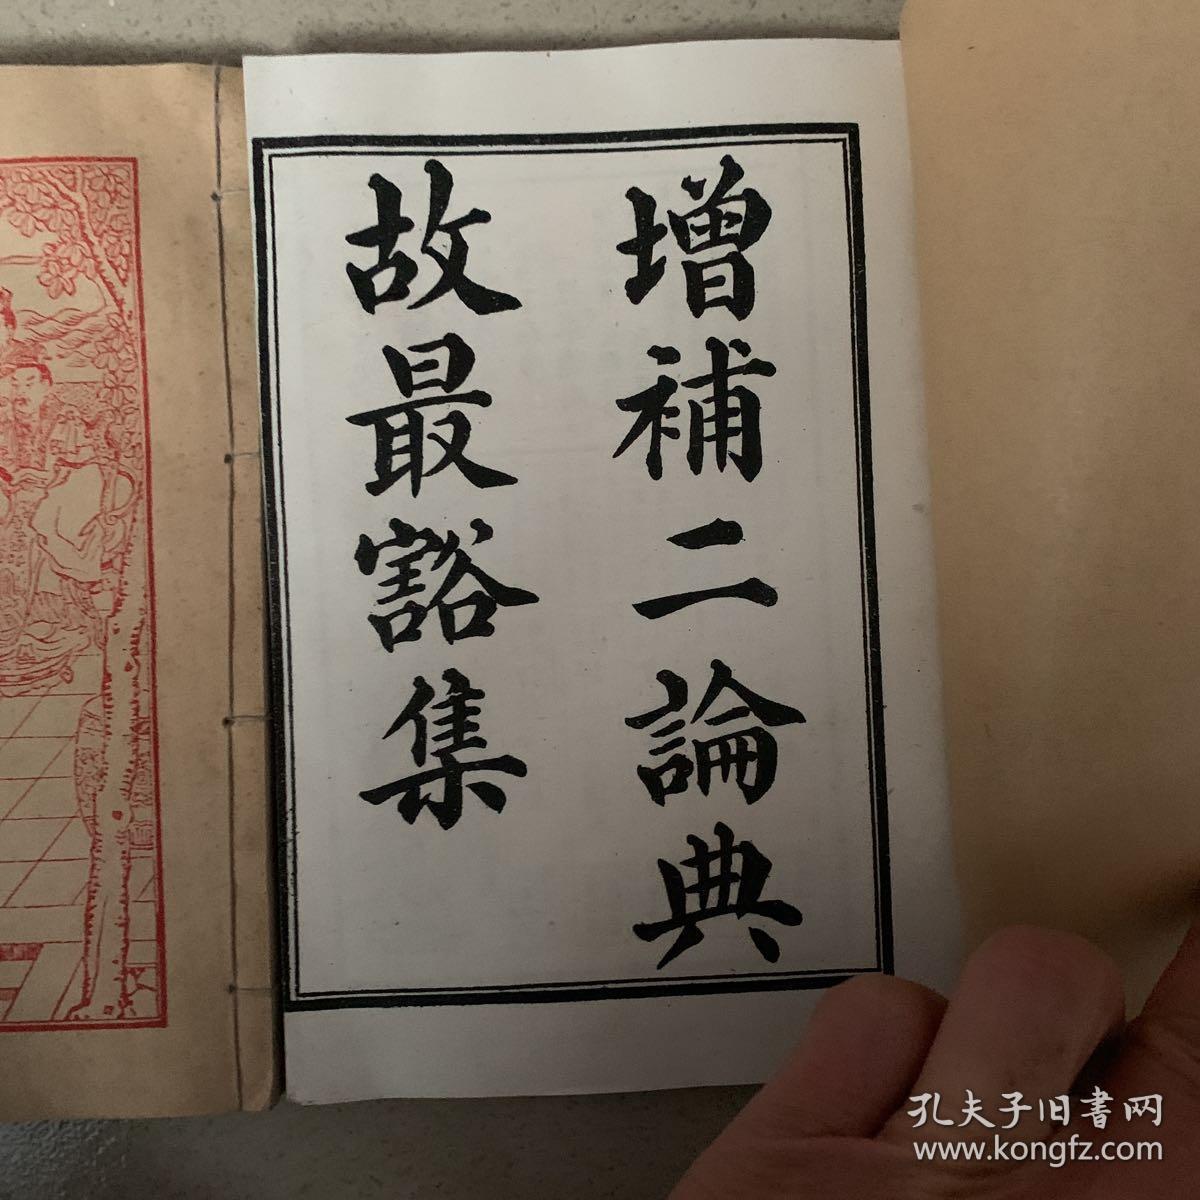 增補二論典
故最豁集
孔夫子旧書网
www.kongfz.com